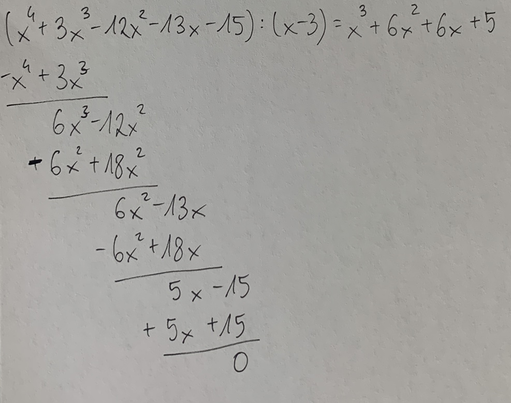 (x⁴ + 3x³ - 12x² - 13x - 15) : (x - 3) = x³ + 6x² + 6x + 5
-x⁴ + 3x³
6x³ - 12x²
-6x² + 18x²
6x² - 13x
-6x² + 18x
5x - 15
+ 5x + 15
0